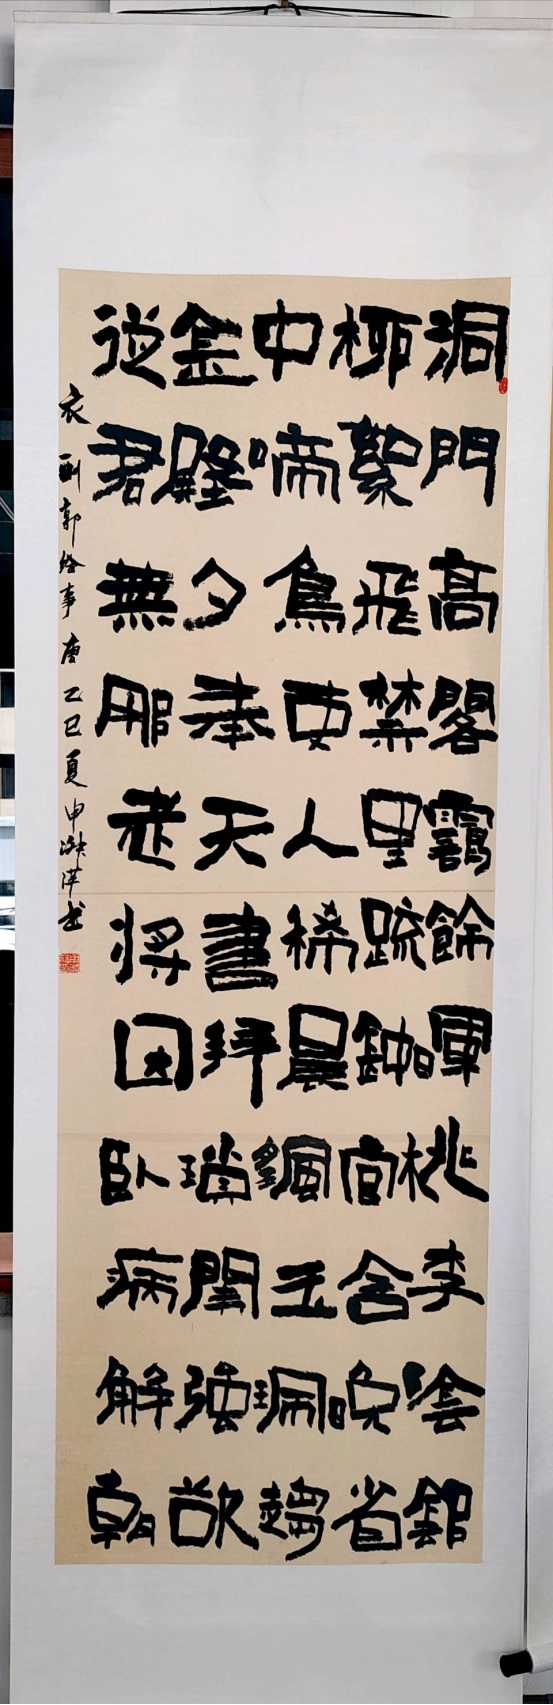 洞門高閣靄餘暉桃李陰陰
柳絮飛禁里疏鐘官舍晚省
中啼鳥吏人稀晨搖玉珮趨
金殿夕奉天書拜瑣闈強欲
從君無那老將因臥病解朝
衣 酬郭給事 唐 乙巳夏申洋书